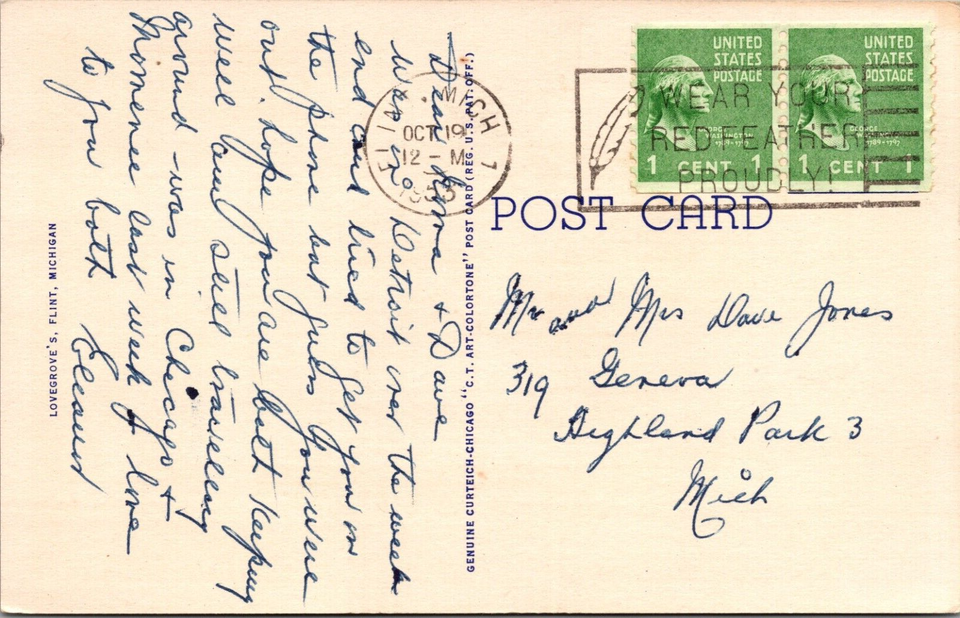 Dear Anna & Dave
Was in Detroit over the week
end and tried to get you on
the phone but guess you were
out. hope you are both keeping
well am still traveling
around - was in Chicago &
Momence last week love
to you both Eleanor
LOVEGROVE'S, FLINT, MICHIGAN
GENUINE CURTEICH-CHICAGO "C.T. ART-COLORTONE" POST CARD (REG. U.S. PAT. OFF.)
FLINT MICH 1
OCT 19
12 - M
1953
WEAR YOUR
RED FEATHER
PROUDLY!
UNITED
STATES
POSTAGE
GEORGE
WASHINGTON
1789-1797
1 CENT 1
UNITED
STATES
POSTAGE
GEORGE
WASHINGTON
1789-1797
1 CENT 1
POST CARD
Mr and Mrs Dave Jones
319 Geneva
Highland Park 3
Mich